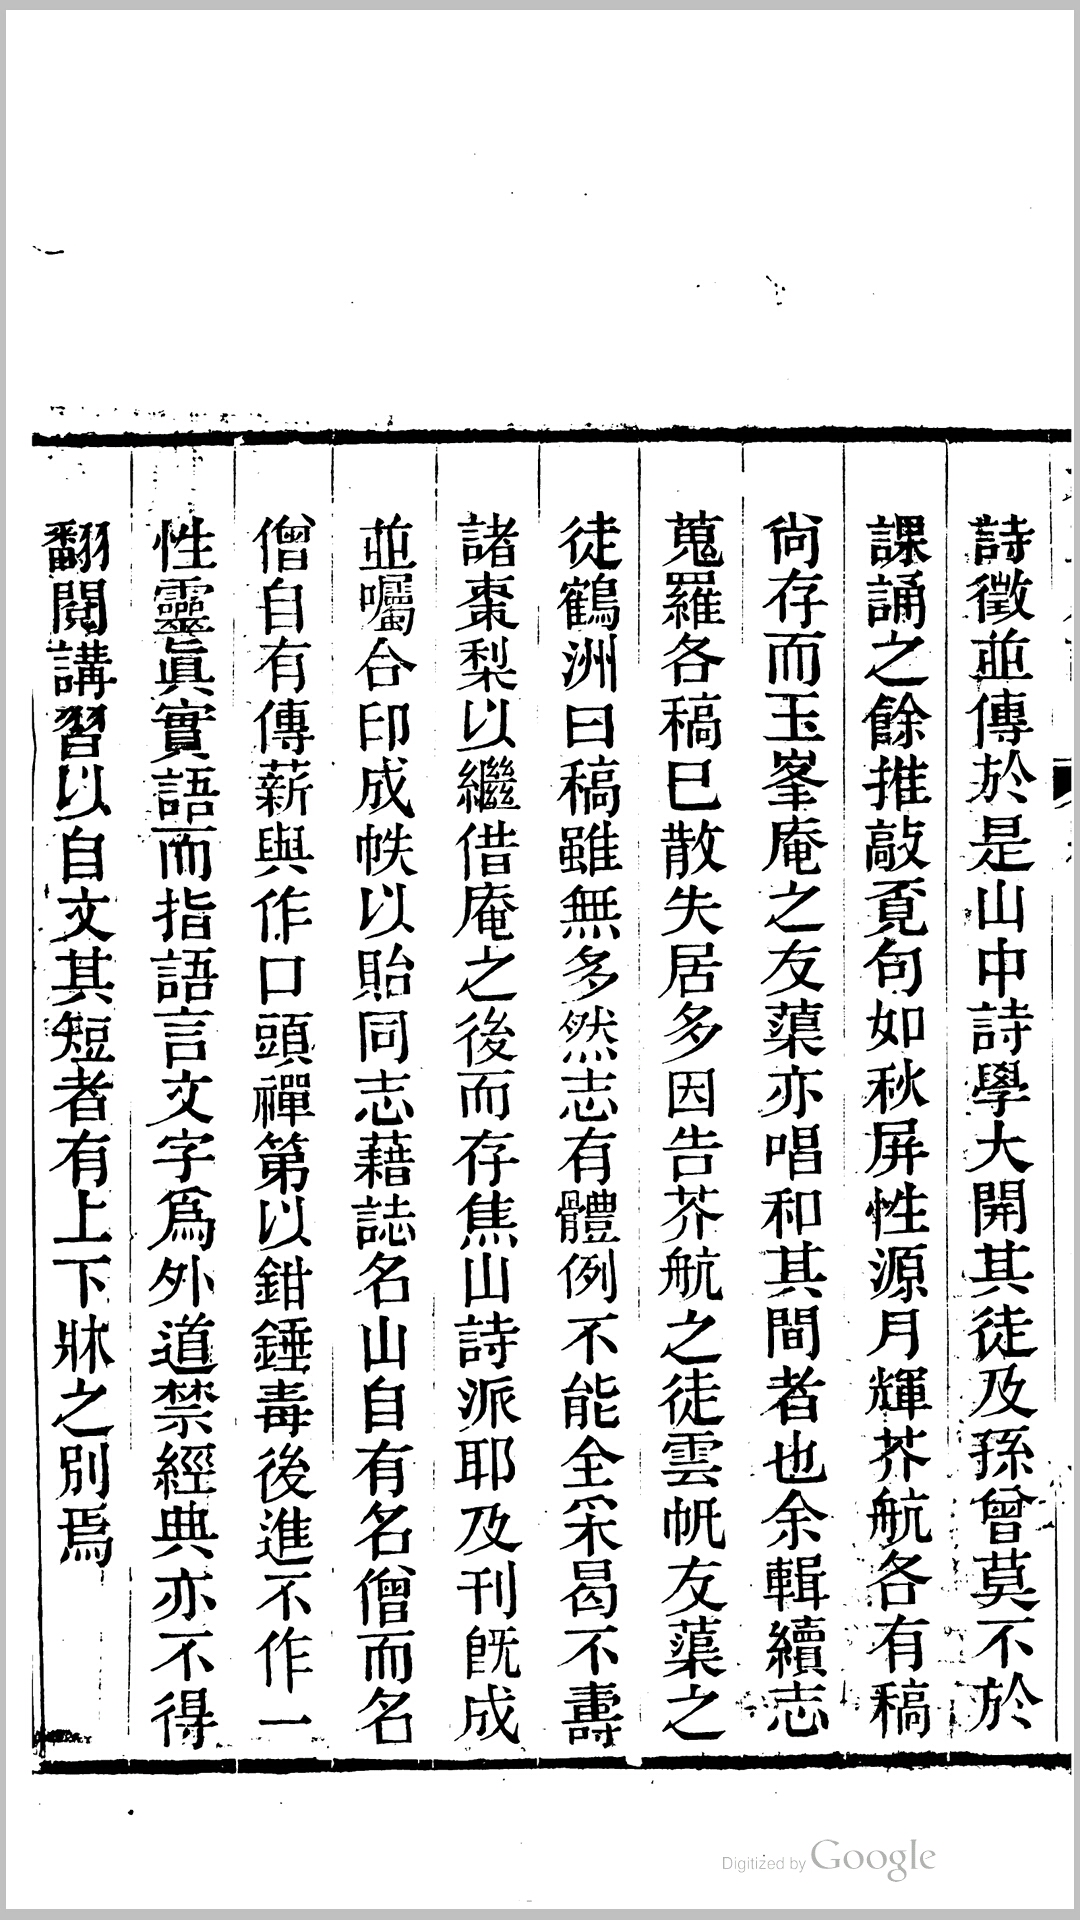 詩徵並傳於是山中詩學大開其徒及孫曾莫不於
課誦之餘推敲覔句如秋屏性源月輝芥航各有稿
尙存而玉峯庵之友蕖亦唱和其間者也余輯續志
蒐羅各稿已散失居多因告芥航之徒雲帆友蕖之
徒鶴洲曰稿雖無多然志有體例不能全采曷不壽
諸棗梨以繼借庵之後而存焦山詩派耶及刊旣成
並囑合印成帙以貽同志藉誌名山自有名僧而名
僧自有傳薪與作口頭禪第以鉗錘毒後進不作一
性靈眞實語而指語言文字爲外道禁經典亦不得
翻閱講習以自文其短者有上下牀之別焉
Digitized by Google